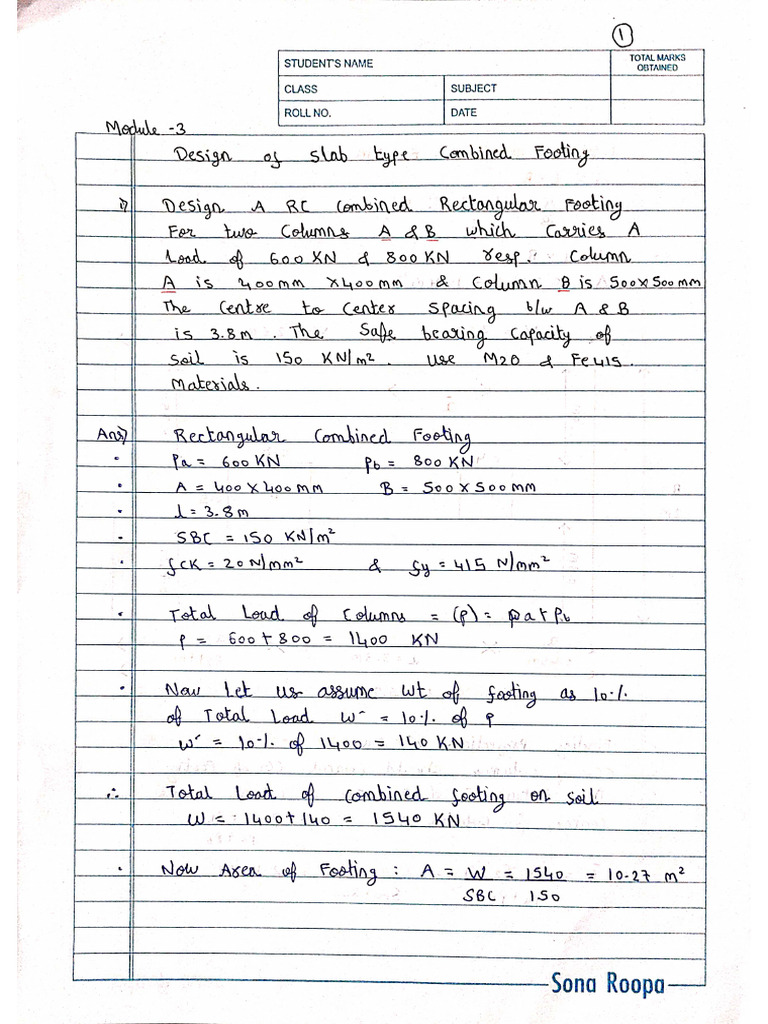 1
STUDENT'S NAME
TOTAL MARKS OBTAINED
CLASS
SUBJECT
ROLL NO.
DATE
Module -3
Design of slab type Combined Footing
1) Design A RC combined Rectangular Footing
For two Columns A & B which Carries A
Load of 600 KN & 800 KN resp. Column
A is 400mm x400mm & Column B is 500x500mm
The Centre to Center Spacing b/w A & B
is 3.8m. The Safe bearing Capacity of
Soil is 150 KN/m². Use M20 & Fe415.
Materials.
Ans) Rectangular Combined Footing
• Pa = 600 KN Pb = 800 KN
• A = 400 X 400 mm B = 500 X 500 mm
• l = 3.8m
• SBC = 150 KN/m²
• fCK = 20 N/mm² & fy = 415 N/mm²
• Total Load of Columns = (P) = Pa + Pb
P = 600 + 800 = 1400 KN
• Now Let us assume Wt of footing as 10%
of Total Load W' = 10% of P
W' = 10% of 1400 = 140 KN
∴ Total Load of Combined footing on Soil
W = 1400 + 140 = 1540 KN
• Now Area of Footing : A = W = 1540 = 10.27 m²
SBC 150
Sona Roopa